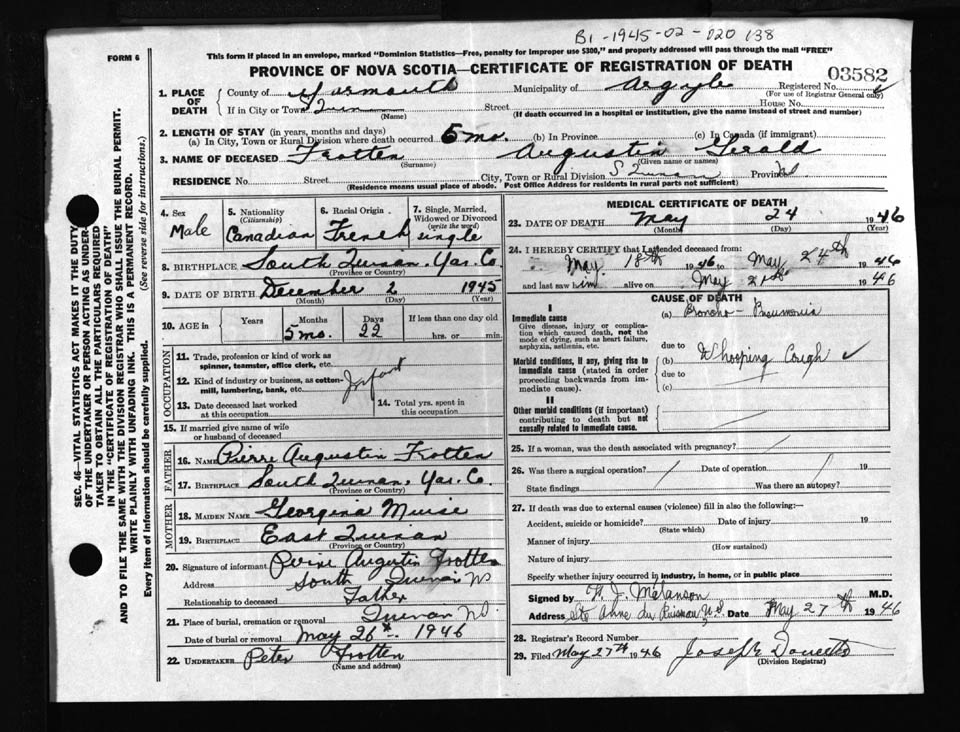 B1-1945-02-020138
FORM 6
This form if placed in an envelope, marked "Dominion Statistics—Free, penalty for improper use $300," and properly addressed will pass through the mail "FREE"
PROVINCE OF NOVA SCOTIA—CERTIFICATE OF REGISTRATION OF DEATH
03582
1. PLACE OF DEATH
County of Yarmouth Municipality of Argyle Registered No.
(For use of Registrar General only)
If in City or Town Street House No.
(Name) (If death occurred in a hospital or institution, give the name instead of street and number)
2. LENGTH OF STAY (in years, months and days)
(a) In City, Town or Rural Division where death occurred 5 mo. (b) In Province (c) In Canada (if immigrant)
3. NAME OF DECEASED Frotten Augustin Gerald
(Surname) (Given name or names)
RESIDENCE No. Street City, Town or Rural Division S Quinan Province
(Residence means usual place of abode. Post Office Address for residents in rural parts not sufficient)
4. Sex Male
5. Nationality (Citizenship) Canadian
6. Racial Origin French
7. Single, Married, Widowed or Divorced (write the word) Single
8. BIRTHPLACE South Quinan, Yar. Co.
(Province or Country)
9. DATE OF BIRTH December 2 1945
(Month) (Day) (Year)
10. AGE in Years Months Days If less than one day old
5 mo. 22 hrs. or min.
OCCUPATION
11. Trade, profession or kind of work as spinner, teamster, office clerk, etc.
12. Kind of industry or business, as cotton-mill, lumbering, bank, etc.
Infant
13. Date deceased last worked at this occupation
14. Total yrs. spent in this occupation
15. If married give name of wife or husband of deceased
FATHER
16. NAME Pierre Augustin Frotten
17. BIRTHPLACE South Quinan, Yar. Co.
(Province or Country)
MOTHER
18. MAIDEN NAME Georgina Muise
19. BIRTHPLACE East Quinan
(Province or Country)
20. Signature of informant Augustin Frotten
Address South Quinan NS
Relationship to deceased Father
21. Place of burial, cremation or removal Quinan NS
Date of burial or removal May 26th 1946
22. UNDERTAKER Peter Frotten
(Name and address)
MEDICAL CERTIFICATE OF DEATH
23. DATE OF DEATH May 24 1946
(Month) (Day) (Year)
24. I HEREBY CERTIFY that I attended deceased from:
May 18th 1946 to May 24th 1946
and last saw him alive on May 21st 1946
CAUSE OF DEATH
I
Immediate cause
Give disease, injury or complication which caused death, not the mode of dying, such as heart failure, asphyxia, asthenia, etc.
(a) Broncho-Pneumonia
due to
Morbid conditions, if any, giving rise to immediate cause (stated in order proceeding backwards from immediate cause).
(b) Whooping Cough ✓
due to
(c)
II
Other morbid conditions (if important) contributing to death but not causally related to immediate cause.
25. If a woman, was the death associated with pregnancy?
26. Was there a surgical operation? Date of operation 19
State findings Was there an autopsy?
27. If death was due to external causes (violence) fill in also the following:—
Accident, suicide or homicide? Date of injury 19
(State which)
Manner of injury
(How sustained)
Nature of injury
Specify whether injury occurred in industry, in home, or in public place
Signed by H. J. Melanson M.D.
Address Ste Anne du Ruisseau N.S. Date May 27th 1946
28. Registrar's Record Number
29. Filed May 27th 1946 Joseph Doucette
(Division Registrar)
SEC. 46—VITAL STATISTICS ACT MAKES IT THE DUTY
OF THE UNDERTAKER OR PERSON ACTING AS UNDERTAKER
TO OBTAIN ALL THE PARTICULARS REQUIRED
IN THE "CERTIFICATE OF REGISTRATION OF DEATH"
AND TO FILE THE SAME WITH THE DIVISION REGISTRAR WHO SHALL ISSUE THE BURIAL PERMIT.
WRITE PLAINLY WITH UNFADING INK. THIS IS A PERMANENT RECORD.
Every item of information should be carefully supplied. (See reverse side for instructions.)